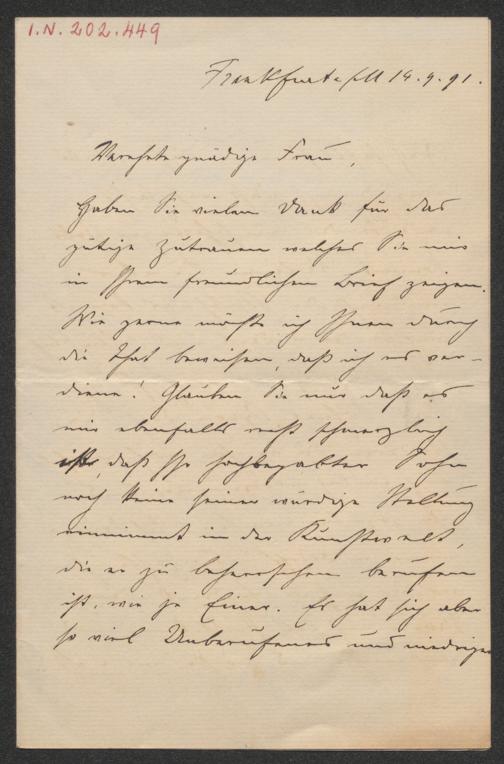 I.N. 202.449
Frankfurt a/M 14.9.91.
Verehrte gnädige Frau,
Haben Sie vielen Dank für das
gütige Zutrauen welches Sie mir
in Ihrem freundlichen Brief zeigen.
Wie gerne möchte ich Ihnen durch
die That beweisen, daß ich es ver-
diene! Glauben Sie nur daß es
mir ebenfalls recht schmerzlich
ist, daß Ihr hochbegabter Sohn
noch keine seiner würdige Stellung
einnimmt in der Kunstwelt,
die er zu beherrschen berufen
ist, wie je Einer. Es hat sich aber
so viel Unberufenes und niedriges